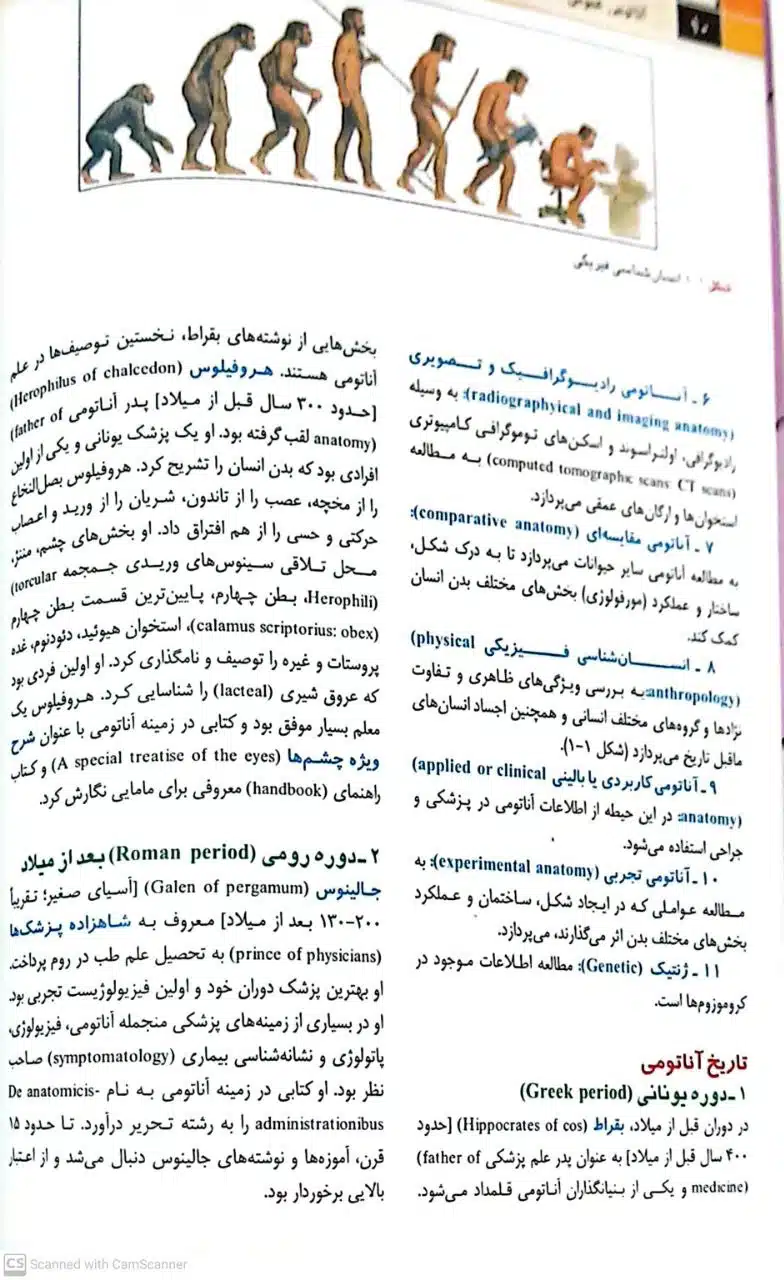 آناتومی عمومی
شکل ۱-۱ انسان‌شناسی فیزیکی
۶ ـ آنـاتومی رادیـوگرافـیک و تـصویری
(radiographical and imaging anatomy): به وسیله
رادیوگرافی، اولتراسوند و اسکن‌های توموگرافی کامپیوتری
(computed tomographic scans: CT scans) به مطالعه
استخوان‌ها و ارگان‌های عمقی می‌پردازد.
۷ ـ آناتومی مقایسه‌ای (comparative anatomy):
به مطالعه آناتومی سایر حیوانات می‌پردازد تا به درک شکل،
ساختار و عملکرد (مورفولوژی) بخش‌های مختلف بدن انسان
کمک کند.
۸ ـ انسـان‌شناسی فـیزیکی (physical
anthropology): به بررسی ویژگی‌های ظاهری و تفاوت
نژادها و گروه‌های مختلف انسانی و همچنین اجساد انسان‌های
ماقبل تاریخ می‌پردازد (شکل ۱-۱).
۹ ـ آناتومی کاربردی یا بالینی (applied or clinical
anatomy): در این حیطه از اطلاعات آناتومی در پزشکی و
جراحی استفاده می‌شود.
۱۰ ـ آناتومی تجربی (experimental anatomy): به
مطالعه عواملی که در ایجاد شکل، ساختمان و عملکرد
بخش‌های مختلف بدن اثر می‌گذارند، می‌پردازد.
۱۱ ـ ژنتیک (Genetic): مطالعه اطلاعات موجود در
کروموزوم‌ها است.
تاریخ آناتومی
۱ ـ دوره یونانی (Greek period)
در دوران قبل از میلاد، بقراط (Hippocrates of cos) [حدود
۴۰۰ سال قبل از میلاد] به عنوان پدر علم پزشکی (father of
medicine) و یکی از بنیانگذاران آناتومی قلمداد می‌شود.
بخش‌هایی از نوشته‌های بقراط، نخستین توصیف‌ها در علم
آناتومی هستند. هروفیلوس (Herophilus of chalcedon)
[حدود ۳۰۰ سال قبل از میلاد] پدر آناتومی (father of
anatomy) لقب گرفته بود. او یک پزشک یونانی و یکی از اولین
افرادی بود که بدن انسان را تشریح کرد. هروفیلوس بصل‌النخاع
را از مخچه، عصب را از تاندون، شریان را از ورید و اعصاب
حرکتی و حسی را از هم افتراق داد. او بخش‌های چشم، مننژ،
محل تلاقی سینوس‌های وریدی جمجمه (torcular
Herophili)، بطن چهارم، پایین‌ترین قسمت بطن چهارم
(calamus scriptorius: obex)، استخوان هیوئید، دئودنوم، غده
پروستات و غیره را توصیف و نامگذاری کرد. او اولین فردی بود
که عروق شیری (lacteal) را شناسایی کرد. هروفیلوس یک
معلم بسیار موفق بود و کتابی در زمینه آناتومی با عنوان شرح
ویژه چشم‌ها (A special treatise of the eyes) و کتاب
راهنمای (handbook) معروفی برای مامایی نگارش کرد.
۲ ـ دوره رومی (Roman period) بعد از میلاد
جالینوس (Galen of pergamum) [آسیای صغیر؛ تقریباً
۲۰۰-۱۳۰ بعد از میلاد] معروف به شاهزاده پزشک‌ها
(prince of physicians) به تحصیل علم طب در روم پرداخت.
او بهترین پزشک دوران خود و اولین فیزیولوژیست تجربی بود.
او در بسیاری از زمینه‌های پزشکی منجمله آناتومی، فیزیولوژی،
پاتولوژی و نشانه‌شناسی بیماری (symptomatology) صاحب
نظر بود. او کتابی در زمینه آناتومی به نام De anatomicis-
administrationibus را به رشته تحریر درآورد. تا حدود ۱۵
قرن، آموزه‌ها و نوشته‌های جالینوس دنبال می‌شد و از اعتبار
بالایی برخوردار بود.
CS Scanned with CamScanner